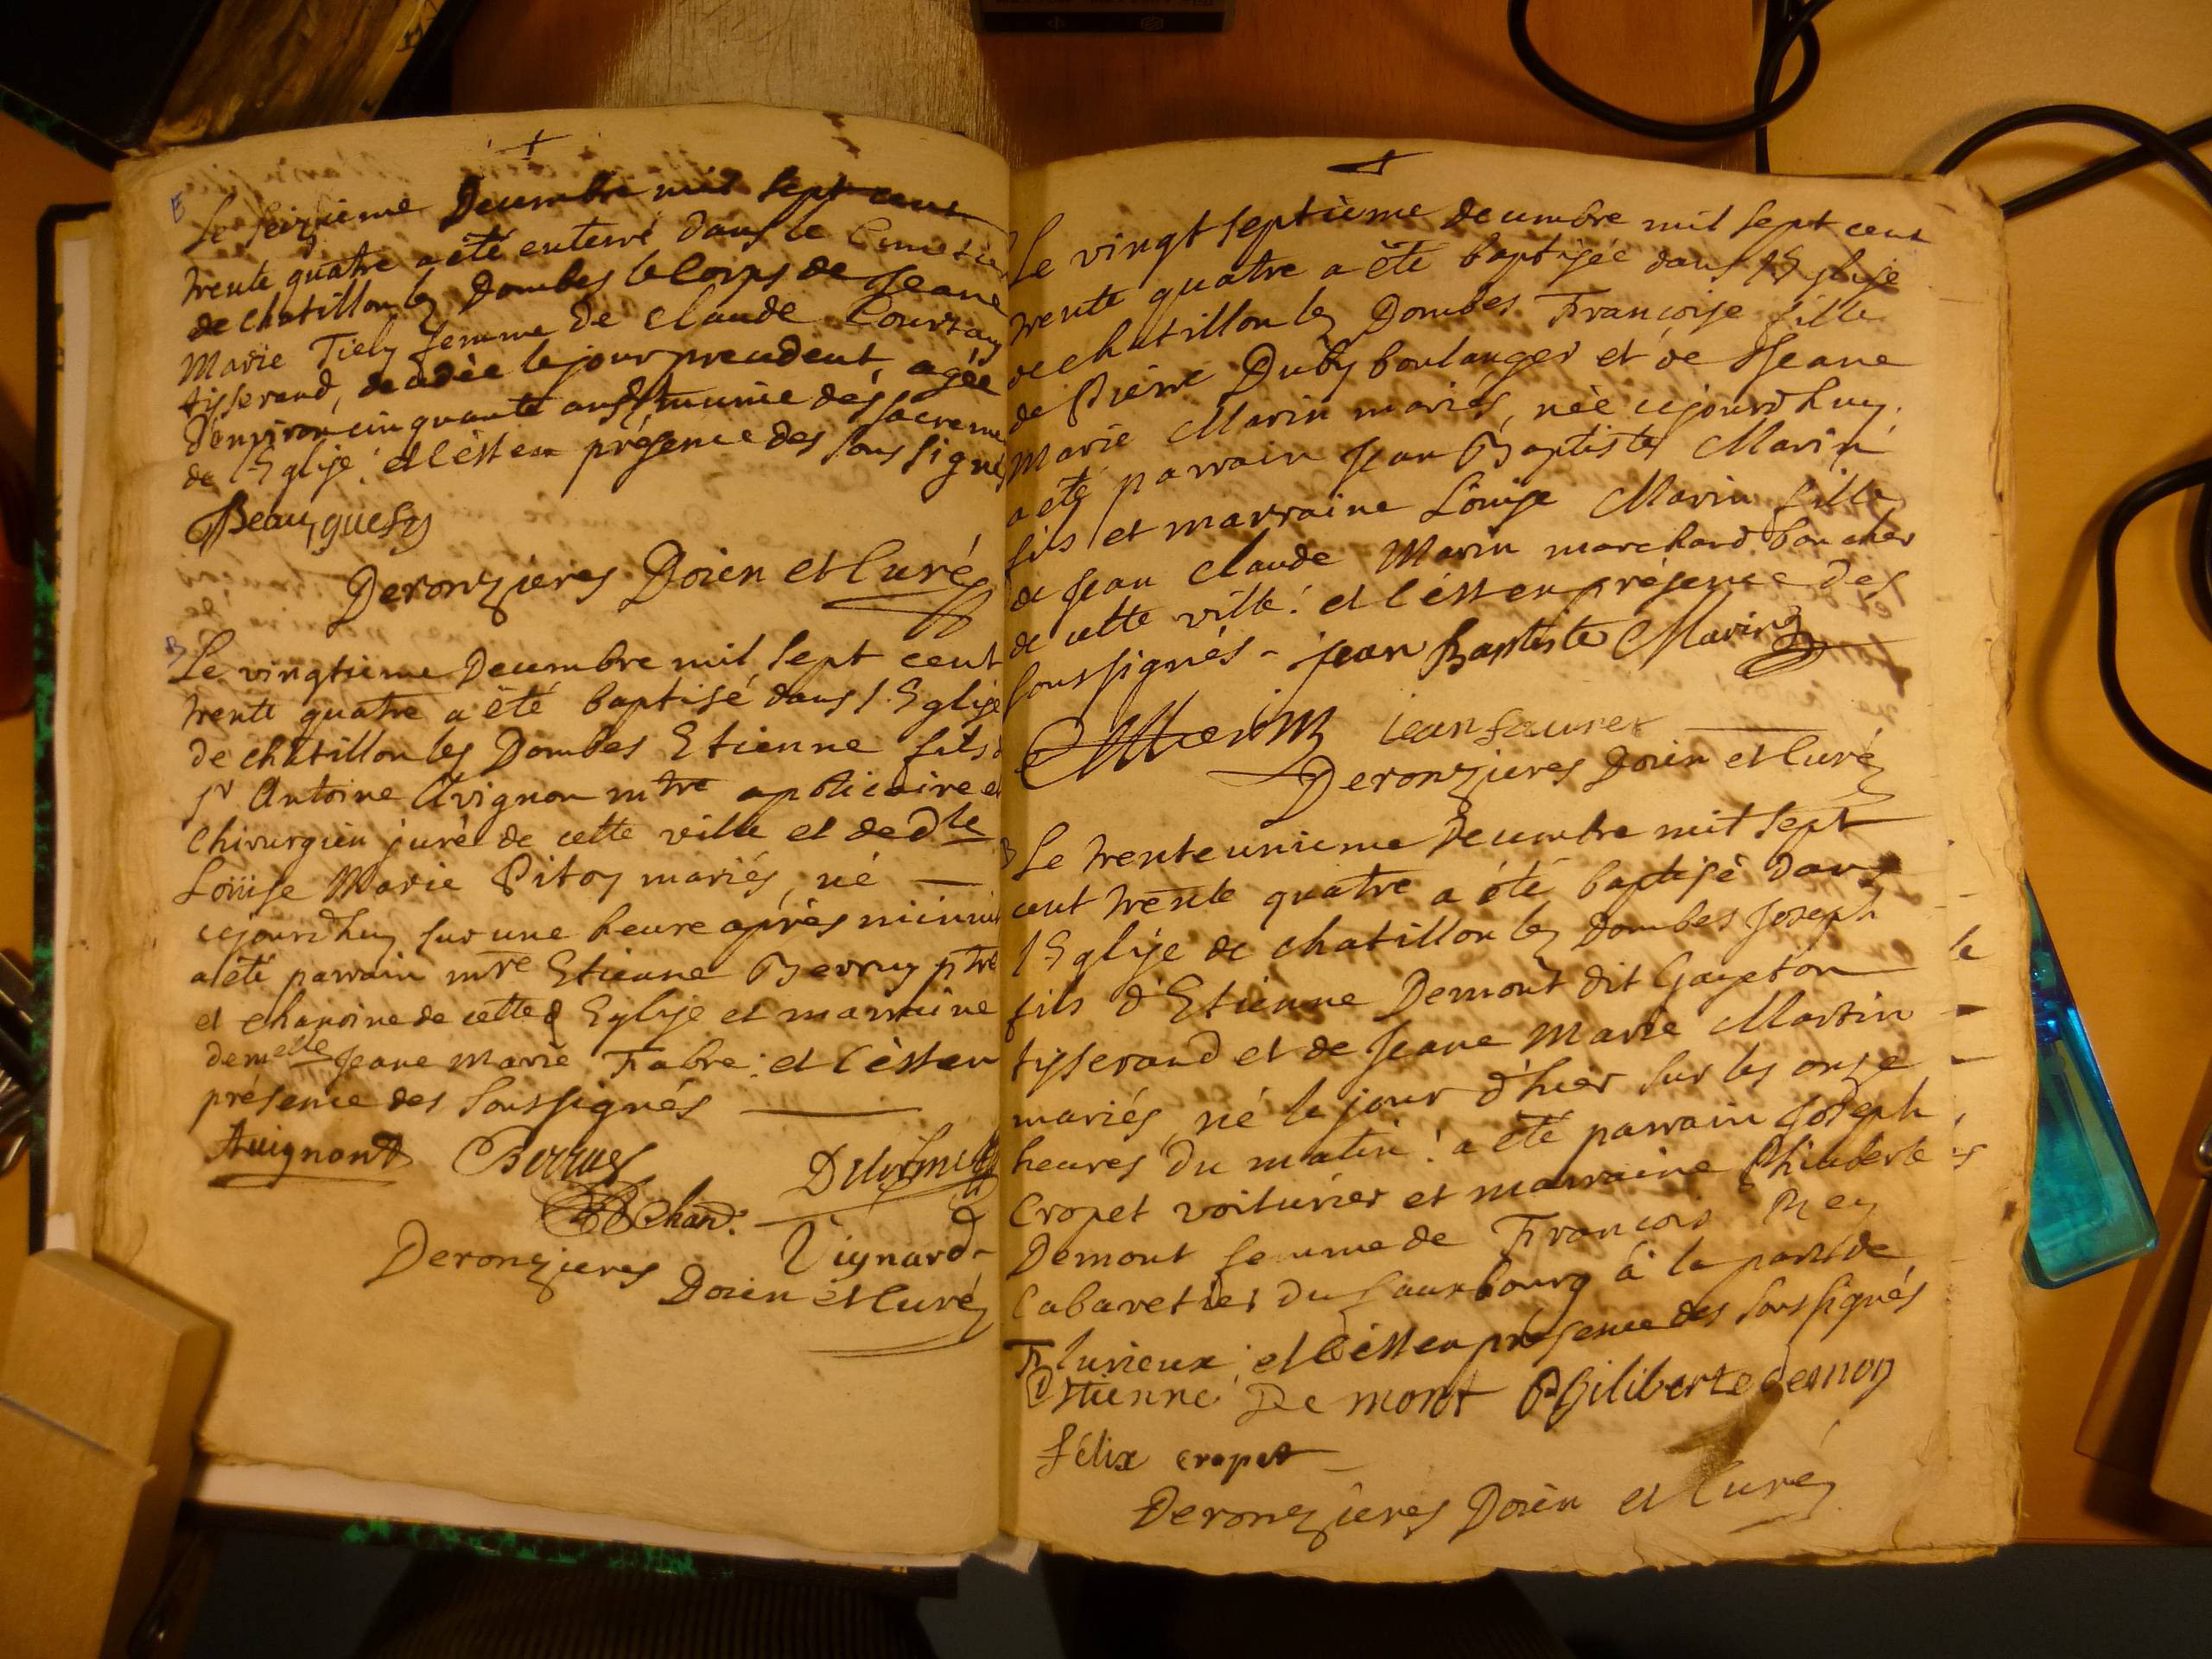 Le seizieme Decembre mil sept cent
trente quatre a été enterré dans le Cimetier
de chatillon les Dombes le Corps de Jeane
Marie Tiely femme de Claude
tisserand, decedée le jour precedent, agée
d'environ cinquante ans munie des sacremen
de l'Eglise: et c'est en présence des soussignés
Deronzieres Doien et Curé
B
Le vingtieme Decembre mil sept cent
trente quatre a été baptisé dans l'Eglise
de chatillon les Dombes Etienne fils d
sr Antoine Avignon mtre apoticaire et
Chirurgien juré de cette ville et de dlle
Loüise Marie Pitoy mariés, né
cejourd'huy sur une heure aprés minuit
a été parrain mre Etienne Berruy ptre
et chanoine de cette d Eglise et marraine
demelle Jeane Marie Fabre: et c'est en
présence des soussignés
Auignont Berruy Delorme
Chan. Vignard
Deronzieres
Doien et Curé
Le vingt septieme decembre mil sept cent
trente quatre a été baptisée dans l'Eglise
de chatillon les Dombes Françoise fille
de Pierre Duby boulanger et de Jeane
Marie Marin mariés, née cejourd'huy.
a été parrain Jean Baptiste Marin
fils et marraine Loüise Marin fille
de Jean Claude Marin marchand boucher
de cette ville: et c'est en présence des
soussignés - jean Baptiste Marin
Marin jean faurer
Deronzieres Doien et Curé
B
Le trente unieme Decembre mil sept
cent trente quatre a été baptisé dans
l'Eglise de chatillon les Dombes Joseph
fils d'Etienne Demont dit Gayeton
tisserand et de Jeane Marie Martin
mariés, né le jour d'hier sur les onze
heures du matin: a été parrain Joseph
Cropet voiturier et marraine Philiberte
Demont femme de François Rey
Cabaretier du fauxbourg à la part de
Flurieux: et c'est en présence des soussignés
Etienne De mont Philiberte demon
félix cropet
Deronzieres Doien et Curé